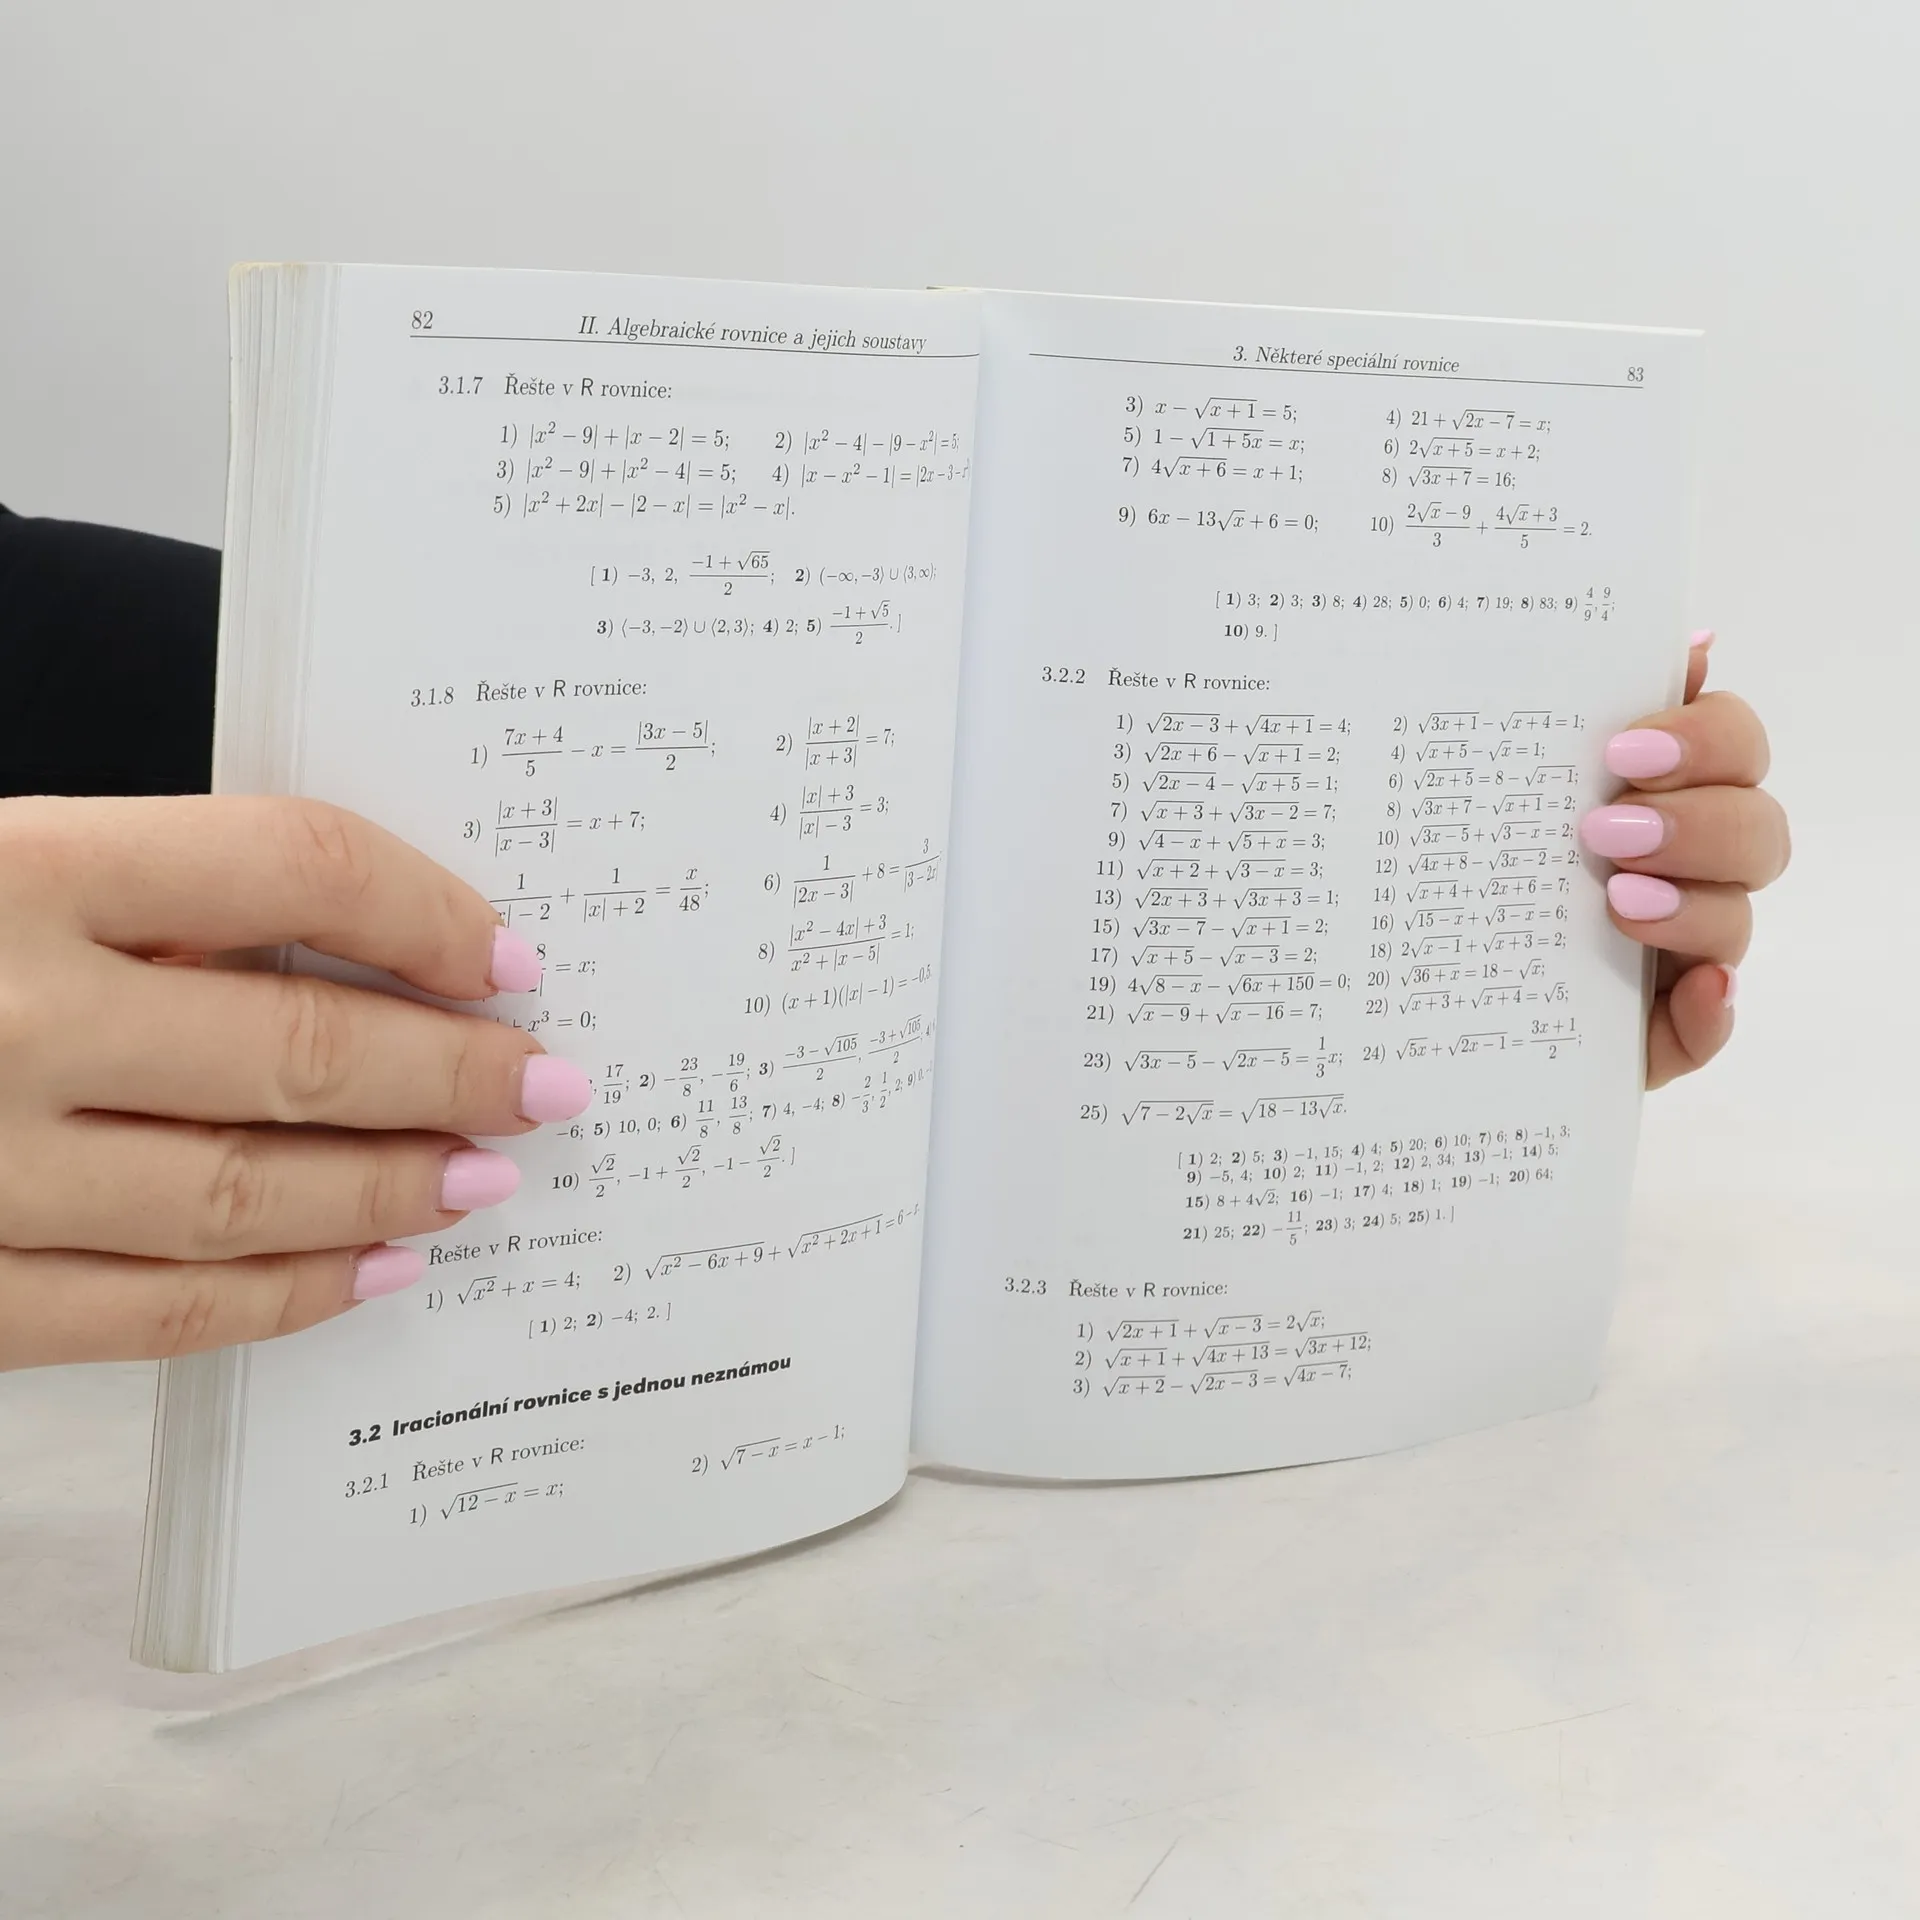 82 II. Algebraické rovnice a jejich soustavy
3.1.7 Řešte v R rovnice:
1) |x² − 9| + |x − 2| = 5; 2) |x² − 4| − |9 − x²| = 5;
3) |x² − 9| + |x² − 4| = 5; 4) |x − x² − 1| = |2x − 3 − x²
5) |x² + 2x| − |2 − x| = |x² − x|.
[ 1) −3, 2, (−1 + √65)/2; 2) (−∞, −3⟩ ∪ ⟨3, ∞);
3) ⟨−3, −2⟩ ∪ ⟨2, 3⟩; 4) 2; 5) (−1 + √5)/2. ]
3.1.8 Řešte v R rovnice:
1) (7x + 4)/5 − x = |3x − 5|/2; 2) |x + 2|/|x + 3| = 7;
3) |x + 3|/|x − 3| = x + 7; 4) (|x| + 3)/(|x| − 3) = 3;
1/(x| − 2) + 1/(|x| + 2) = x/48; 6) 1/|2x − 3| + 8 = 3/|3 − 2x|
8 = x; 8) (|x² − 4x| + 3)/(x² + |x − 5|) = 1;
+ x³ = 0; 10) (x + 1)(|x| − 1) = −0,5.
, 17/19; 2) −23/8, −19/6; 3) (−3 − √105)/2, (−3 + √105)/2;
−6; 5) 10, 0; 6) 11/8, 13/8; 7) 4, −4; 8) −2/3, 1/2, 2; 9) 0,
10) √2/2, −1 + √2/2, −1 − √2/2. ]
Řešte v R rovnice:
1) √(x²) + x = 4; 2) √(x² − 6x + 9) + √(x² + 2x + 1) = 6 − x.
[ 1) 2; 2) −4; 2. ]
3.2 Iracionální rovnice s jednou neznámou
3.2.1 Řešte v R rovnice:
1) √(12 − x) = x; 2) √(7 − x) = x − 1;
3. Některé speciální rovnice 83
3) x − √(x + 1) = 5; 4) 21 + √(2x − 7) = x;
5) 1 − √(1 + 5x) = x; 6) 2√(x + 5) = x + 2;
7) 4√(x + 6) = x + 1; 8) √(3x + 7) = 16;
9) 6x − 13√x + 6 = 0; 10) (2√x − 9)/3 + (4√x + 3)/5 = 2.
[ 1) 3; 2) 3; 3) 8; 4) 28; 5) 0; 6) 4; 7) 19; 8) 83; 9) 4/9, 9/4;
10) 9. ]
3.2.2 Řešte v R rovnice:
1) √(2x − 3) + √(4x + 1) = 4; 2) √(3x + 1) − √(x + 4) = 1;
3) √(2x + 6) − √(x + 1) = 2; 4) √(x + 5) − √x = 1;
5) √(2x − 4) − √(x + 5) = 1; 6) √(2x + 5) = 8 − √(x − 1);
7) √(x + 3) + √(3x − 2) = 7; 8) √(3x + 7) − √(x + 1) = 2;
9) √(4 − x) + √(5 + x) = 3; 10) √(3x − 5) + √(3 − x) = 2;
11) √(x + 2) + √(3 − x) = 3; 12) √(4x + 8) − √(3x − 2) = 2;
13) √(2x + 3) + √(3x + 3) = 1; 14) √(x + 4) + √(2x + 6) = 7;
15) √(3x − 7) − √(x + 1) = 2; 16) √(15 − x) + √(3 − x) = 6;
17) √(x + 5) − √(x − 3) = 2; 18) 2√(x − 1) + √(x + 3) = 2;
19) 4√(8 − x) − √(6x + 150) = 0; 20) √(36 + x) = 18 − √x;
21) √(x − 9) + √(x − 16) = 7; 22) √(x + 3) + √(x + 4) = √5;
23) √(3x − 5) − √(2x − 5) = 1/3x; 24) √(5x) + √(2x − 1) = (3x + 1)/2;
25) √(7 − 2√x) = √(18 − 13√x).
[ 1) 2; 2) 5; 3) −1, 15; 4) 4; 5) 20; 6) 10; 7) 6; 8) −1, 3;
9) −5, 4; 10) 2; 11) −1, 2; 12) 2, 34; 13) −1; 14) 5;
15) 8 + 4√2; 16) −1; 17) 4; 18) 1; 19) −1; 20) 64;
21) 25; 22) −11/5; 23) 3; 24) 5; 25) 1. ]
3.2.3 Řešte v R rovnice:
1) √(2x + 1) + √(x − 3) = 2√x;
2) √(x + 1) + √(4x + 13) = √(3x + 12);
3) √(x + 2) − √(2x − 3) = √(4x − 7);